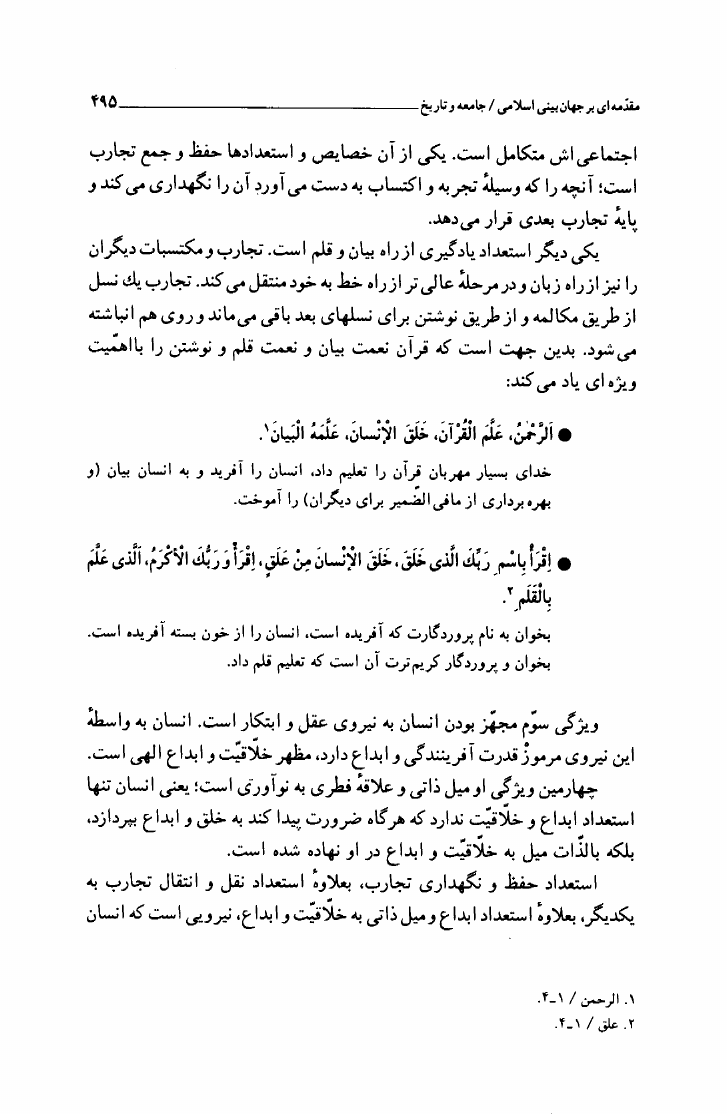 مقدّمه‌ای بر جهان‌بینی اسلامی / جامعه و تاریخ ۴۹۵
اجتماعی‌اش متکامل است. یکی از آن خصایص و استعدادها حفظ و جمع تجارب
است؛ آنچه را که وسیلهٔ تجربه و اکتساب به دست می‌آورد آن را نگهداری می‌کند و
پایهٔ تجارب بعدی قرار می‌دهد.
یکی دیگر استعداد یادگیری از راه بیان و قلم است. تجارب و مکتسبات دیگران
را نیز از راه زبان و در مرحلهٔ عالی‌تر از راه خط به خود منتقل می‌کند. تجارب یك نسل
از طریق مکالمه و از طریق نوشتن برای نسلهای بعد باقی می‌ماند و روی هم انباشته
می‌شود. بدین جهت است که قرآن نعمت بیان و نعمت قلم و نوشتن را بااهمّیت
ویژه‌ای یاد می‌کند:
● اَلرَّحْمٰنُ، عَلَّمَ الْقُرْآنَ، خَلَقَ الْاِنْسانَ، عَلَّمَهُ الْبَیانَ۱.
خدای بسیار مهربان قرآن را تعلیم داد، انسان را آفرید و به انسان بیان (و
بهره‌برداری از مافی‌الضّمیر برای دیگران) را آموخت.
● اِقْرَأْ بِاسْمِ رَبِّكَ الَّذی خَلَقَ، خَلَقَ الْاِنْسانَ مِنْ عَلَقٍ، اِقْرَأْ وَ رَبُّكَ الْاَكْرَمُ، اَلَّذی عَلَّمَ
بِالْقَلَمِ۲.
بخوان به نام پروردگارت که آفریده است، انسان را از خون بسته آفریده است.
بخوان و پروردگار کریم‌ترت آن است که تعلیم قلم داد.
ویژگی سوّم مجهّز بودن انسان به نیروی عقل و ابتکار است. انسان به واسطهٔ
این نیروی مرموزْ قدرت آفرینندگی و ابداع دارد، مظهر خلاّقیّت و ابداع الهی است.
چهارمین ویژگی او میل ذاتی و علاقهٔ فطری به نوآوری است؛ یعنی انسان تنها
استعداد ابداع و خلاّقیّت ندارد که هرگاه ضرورت پیدا کند به خلق و ابداع بپردازد،
بلکه بالذّات میل به خلاّقیّت و ابداع در او نهاده شده است.
استعداد حفظ و نگهداری تجارب، بعلاوهٔ استعداد نقل و انتقال تجارب به
یکدیگر، بعلاوهٔ استعداد ابداع و میل ذاتی به خلاّقیّت و ابداع، نیرویی است که انسان
۱. الرحمن / ۱ـ۴.
۲. علق / ۱ـ۴.